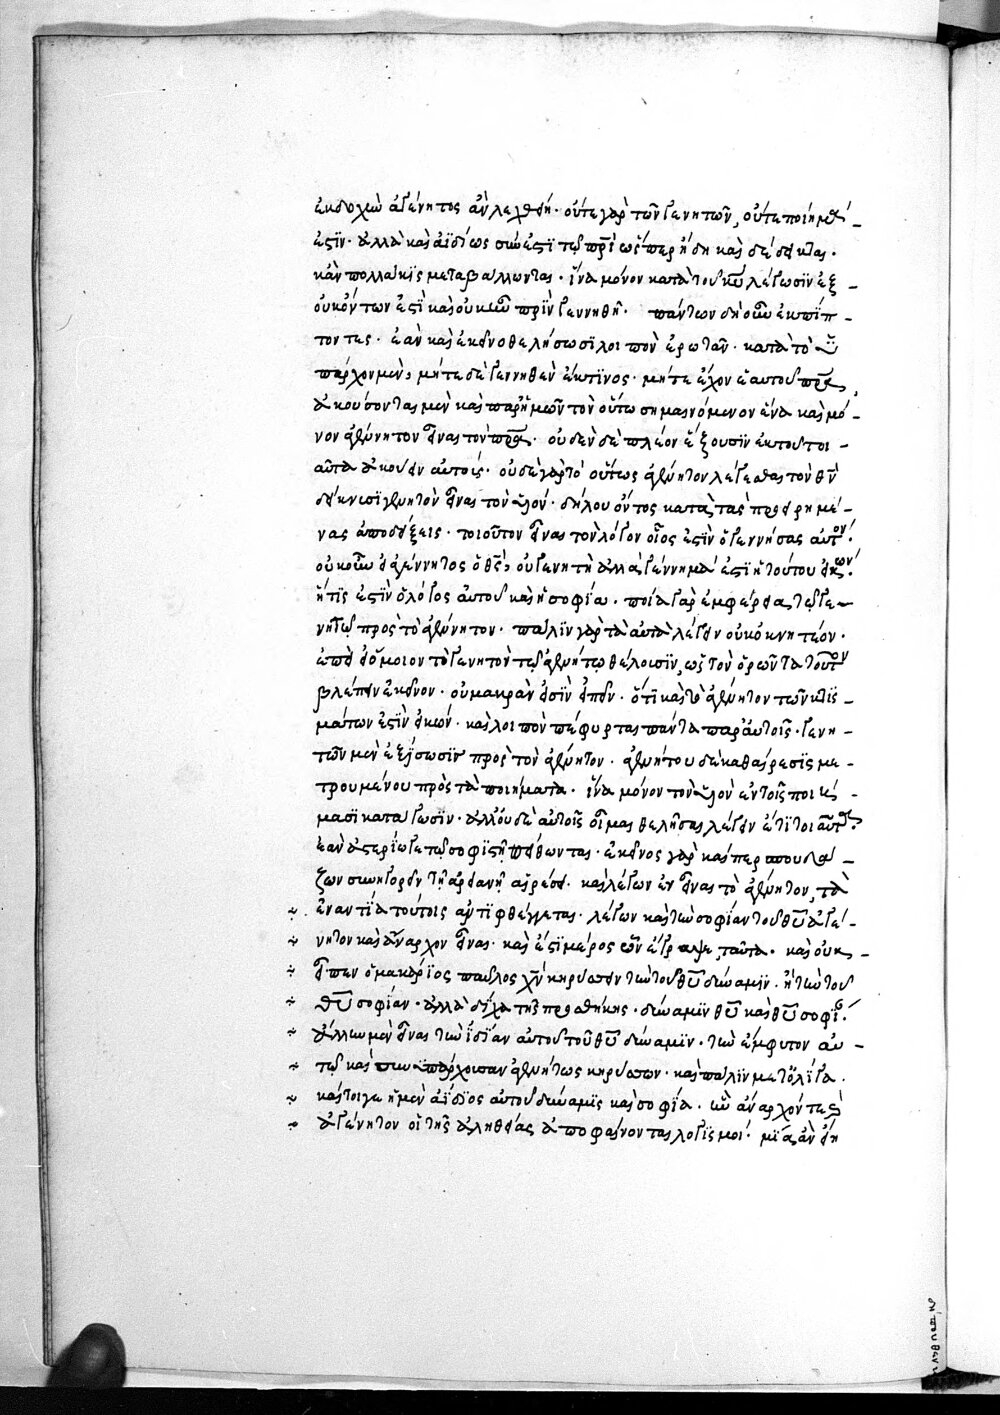 ἐκδοχὴν ἀγένητος ἂν λεχθῇ· οὔτε γὰρ τῶν γενητῶν, οὔτε ποίημά
ἐστιν· ἀλλὰ καὶ ἀϊδίως σύνεστι τῷ πρὶ ὥσπερ ἤδη καὶ δέδεικται·
κἂν πολλάκις μεταβάλλωνται· ἵνα μόνον κατὰ τοῦ κυ λέγωσιν ἐξ
οὐκ ὄντων ἐστὶ καὶ οὐκ ἦν πρὶν γεννηθῇ· πάντων δὴ οὖν ἐκπίπ
τοντες· ἐὰν καὶ ἐκεῖνο θελήσωσι λοιπὸν ἐρωτᾶν· κατὰ τὸ ὑ
πάρχον μὲν, μήτε δὲ γεννηθὲν ἔκ τινος· μήτε ἔχον ἑαυτοῦ πρα,
ἀκούσονται μὲν καὶ παρ' ἡμῶν τὸν οὕτω σημαινόμενον ἕνα καὶ μό
νον ἀγένητον εἶναι τὸν πρα· οὐδὲν δὲ πλέον ἕξουσιν ἐκ τοῦ τοι
αῦτα ἀκούειν αὐτούς· οὐδὲ γὰρ τὸ οὕτως ἀγένητον λέγεσθαι τὸν θν
δείκνυσι γενητὸν εἶναι τὸν υἱόν· δήλου ὄντος κατὰ τὰς προειρημέ
νας ἀποδείξεις· τοιοῦτον εἶναι τὸν λόγον οἷος ἐστὶν ὁ γεννήσας αὐτόν·
οὐκοῦν εἰ ἀγέννητος ὁ θς, οὐ γενητὴ ἀλλὰ γέννημά ἐστιν ἡ τούτου εἰκών·
ἥτις ἐστὶν ὁ λόγος αὐτοῦ καὶ ἡ σοφία· ποία γὰρ ἐμφέρεια τῷ γε
νητῷ πρὸς τὸ ἀγένητον· πάλιν γὰρ τὰ αὐτὰ λέγειν οὐκ ὀκνητέον·
ἐπεὶ εἰ ὅμοιον τὸ γενητὸν τῷ ἀγενήτῳ θέλοισιν, ὡς τὸν ὁρῶντα τοῦτον
βλέπειν ἐκεῖνον· οὐ μακράν εἰσιν εἰπεῖν· ὅτι καὶ τὸ ἀγένητον τῶν κτισ
μάτων ἐστὶν εἰκών· καὶ λοιπὸν πέφυρται πάντα παρ' αὐτοῖς· γενη
τῶν μὲν ἐξίσωσιν πρὸς τὸν ἀγένητον· ἀγενήτου δὲ καθαίρεσις με
τρουμένου πρὸς τὰ ποιήματα· ἵνα μόνον τὸν υἱὸν ἐν τοῖς ποιή
μασι καταλῶσιν· ἀλλ' οὐδὲ αὐτοὺς οἶμαι θελῆσαι λέγειν ἔτι τοιαῦτα·
ἐὰν ἀστερίῳ γε τῷ σοφιστῇ πείθωνται· ἐκεῖνος γὰρ καίπερ σπουδά
ζων συνηγορεῖν τῇ ἀρειανῇ αἱρέσει· καὶ λέγων ἓν εἶναι τὸ ἀγένητον, τὰ
ἐναντία τούτοις ἀντιφθέγγεται· λέγων καὶ τὴν σοφίαν τοῦ θυ ἀγέ
νητον καὶ ἄναρχον εἶναι· καὶ ἔστι μέρος ὧν ἔγραψε, ταῦτα· καὶ οὐκ
εἶπεν ὁ μακάριος παῦλος χν κηρύσσειν τὴν τοῦ θυ δύναμιν· ἢ τὴν τοῦ
θυ σοφίαν· ἀλλὰ δίχα τῆς προσθήκης· δύναμιν θυ καὶ θυ σοφί·
ἄλλην μὲν εἶναι τὴν ἰδίαν αὐτοῦ τοῦ θυ δύναμιν· τὴν ἔμφυτον αὐ
τῷ καὶ συνυπάρχουσαν ἀγενήτως κηρύσσων· καὶ πάλιν μετ' ὀλίγα·
καίτοιγε ἡ μὲν ἀΐδιος αὐτοῦ δύναμις καὶ σοφία· ἣν ἄναρχόν τε καὶ
ἀγένητον οἱ τῆς ἀληθείας ἀποφαίνονται λογισμοί· μία ἂν εἴη